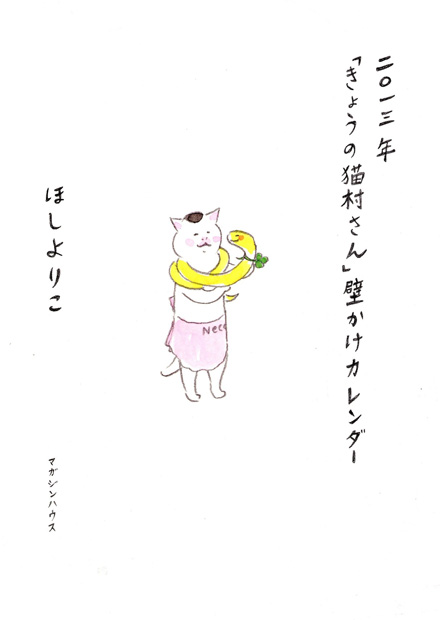 二〇一三年
「きょうの猫村さん」壁かけカレンダー
Neco
ほしよりこ
マガジンハウス